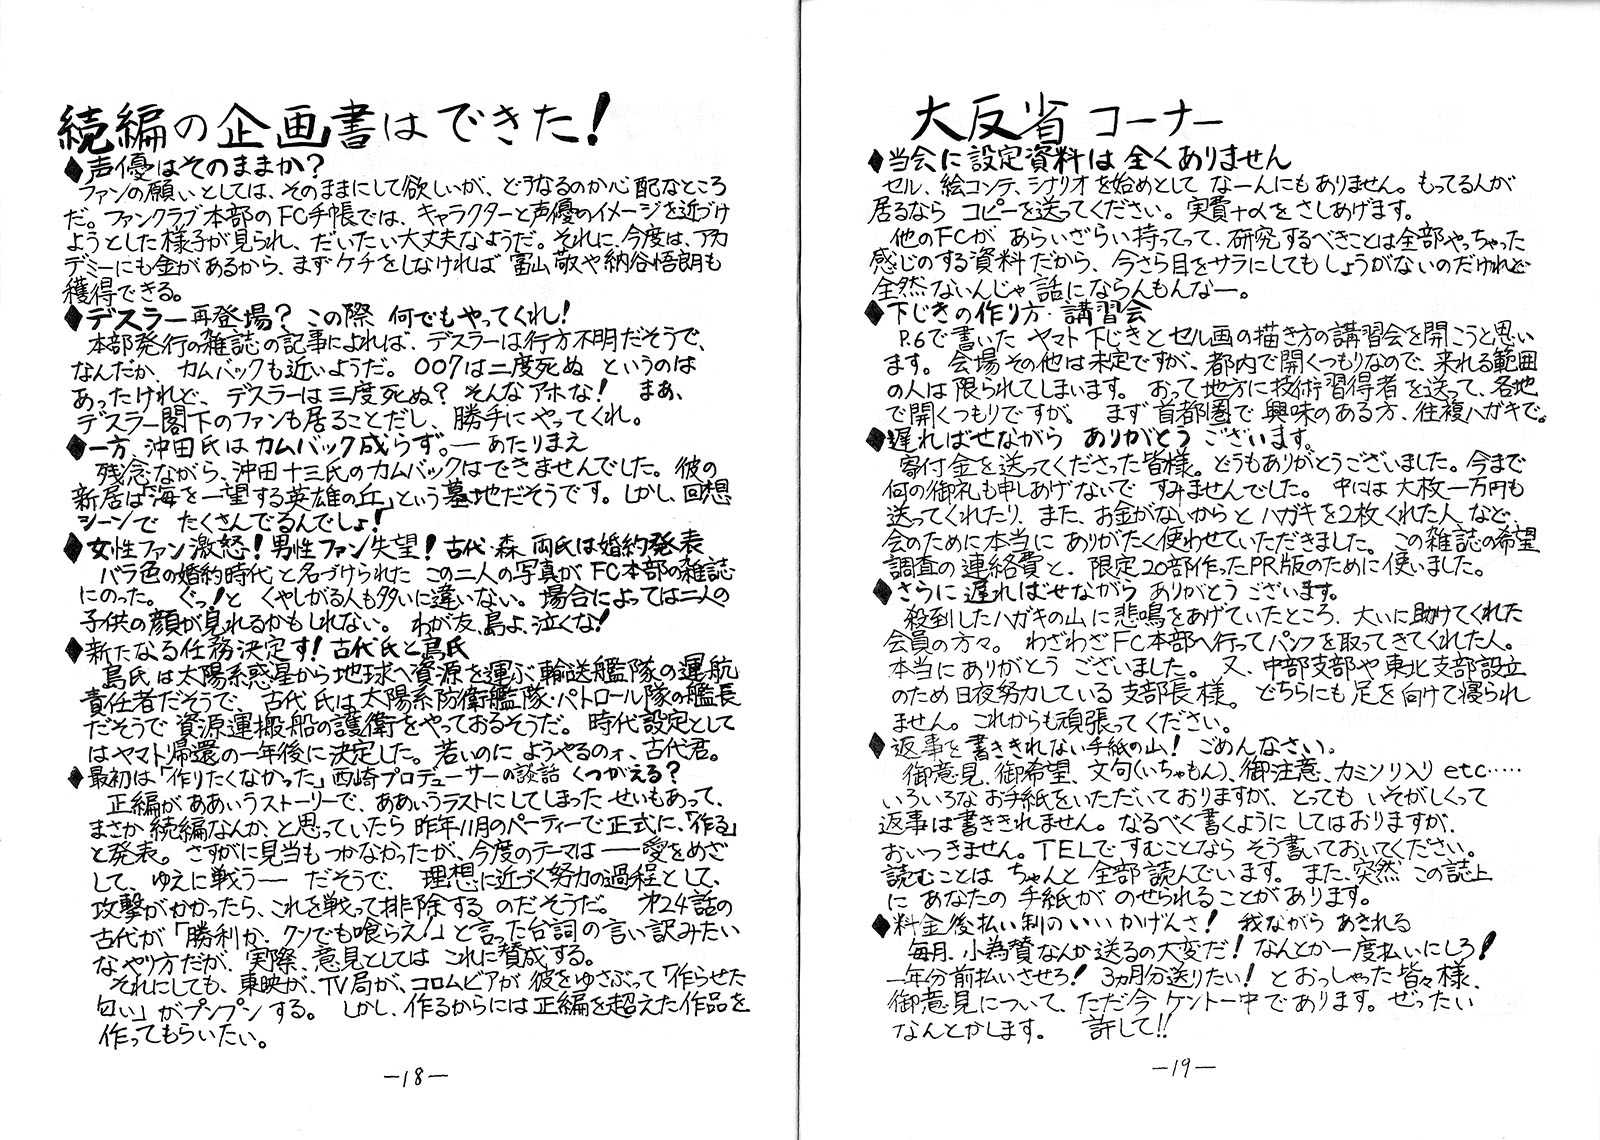 続編の企画書はできた!
◆声優はそのままか?
ファンの願いとしては、そのままにして欲しいが、どうなるのか心配なところ
だ。ファンクラブ本部のFC手帳では、キャラクターと声優のイメージを近づけ
ようとした様子が見られ、だいたい大丈夫なようだ。それに、今度は、アカ
デミーにも金があるから、まずケチをしなければ 富山敬や納谷悟朗も
獲得できる。
◆デスラー再登場? この際 何でもやってくれ!
本部発行の雑誌の記事によれば、デスラーは行方不明だそうで、
なんだか、カムバックも近いようだ。007は二度死ぬ というのは
あったけれど、デスラーは三度死ぬ? そんなアホな! まぁ、
デスラー閣下のファンも居ることだし、勝手にやってくれ。
◆一方、沖田氏はカムバック成らず。—あたりまえ
残念ながら、沖田十三氏のカムバックはできませんでした。彼の
新居は「海を一望する英雄の丘」という墓地だそうです。しかし、回想
シーンで たくさんでるんでしょ!
◆女性ファン激怒!男性ファン失望! 古代・森 両氏は婚約発表
バラ色の婚約時代と名づけられた この二人の写真が FC本部の雑誌
にのった。ぐっ!と くやしがる人も多いに違いない。場合によっては二人の
子供の顔が見れるかもしれない。 わが友、島よ、泣くな!
◆新たなる任務決定す!古代氏と島氏
島氏は太陽系惑星から地球へ資源を運ぶ輸送艦隊の運航
責任者だそうで、古代氏は太陽系防衛艦隊・パトロール隊の艦長
だそうで 資源運搬船の護衛をやっておるそうだ。時代設定として
はヤマト帰還の一年後に決定した。若いのに ようやるのォ、古代君。
◆最初は「作りたくなかった」西崎プロデューサーの談話 くつがえる?
正編がああいうストーリーで、ああいうラストにしてしまったせいもあって、
まさか続編なんか、と思っていたら 昨年11月のパーティーで正式に、「作る」
と発表。さすがに見当もつかなかったが、今度のテーマは——愛をめざ
して、ゆえに戦う—— だそうで、理想に近づく努力の過程として、
攻撃がかかったら、これを戦って排除する のだそうだ。 才24話の
古代が「勝利か、クソでも喰らえ!」と言った台詞の言い訳みたい
なやり方だが、実際、意見としては これに賛成する。
それにしても、東映が、TV局が、コロムビアが 彼をゆさぶって「作らせた
匂い」がプンプンする。 しかし、作るからには正編を超えた作品を
作ってもらいたい。
—18—
大反省コーナー
◆当会に設定資料は全くありません
セル、絵コンテ、シナリオを始めとして なーんにもありません。もってる人が
居るなら コピーを送ってください。実費+αをさしあげます。
他のFCが あらいざらい持ってって、研究するべきことは全部やっちゃった
感じのする資料だから、今さら目をサラにしてもしょうがないのだけれど
全然ないんじゃ話にならんもんなー。
◆下じきの作り方・講習会
P.6で書いた ヤマト下じきとセル画の描き方の講習会を開こうと思い
ます。会場その他は未定ですが、都内で開くつもりなので、来れる範囲
の人は限られてしまいます。 おって地方に技術習得者を送って、各地
で開くつもりですが。 まず首都圏で 興味のある方、往複ハガキで。
◆遅ればせながら ありがとう ございます。
寄付金を送ってくださった皆様。どうもありがとうございました。今まで
何の御礼も申しあげないで すみませんでした。 中には大枚一万円も
送ってくれたり、また、お金がないからと ハガキを2枚くれた人など
会のために本当に ありがたく使わせていただきました。この雑誌の希望
調査の連絡費と、限定20部作ったPR版のために使いました。
◆さらに 遅ればせながら ありがとう ございます。
殺到したハガキの山に悲鳴をあげていたところ、大いに助けてくれた
会員の方々。 わざわざFC本部へ行ってパンフを取ってきてくれた人。
本当にありがとう ございました。 又、中部支部や東北支部設立
のため日夜努力している支部長様。どちらにも足を向けて寝られ
ません。これからも頑張ってください。
◆返事を書ききれない手紙の山! ごめんなさい。
御意見、御希望、文句(いちゃもん)、御注意、カミソリ入り etc……
いろいろな お手紙をいただいておりますが、とっても いそがしくって
返事は書ききれません。なるべく書くように してはおりますが、
おいつきません。TELですむことなら そう書いておいてください。
読むことは ちゃんと 全部読んでいます。また、突然 この誌上
に あなたの 手紙が のせられることがあります。
◆料金後払い制のいいかげんさ! 我ながら あきれる
毎月、小為替なんか送るの大変だ! なんとか一度払いにしろ!
一年分前払いさせろ! 3ヵ月分送りたい! とおっしゃった皆々様、
御意見について、ただ今ケントー中であります。ぜったい
なんとかします。 許して!!
—19—